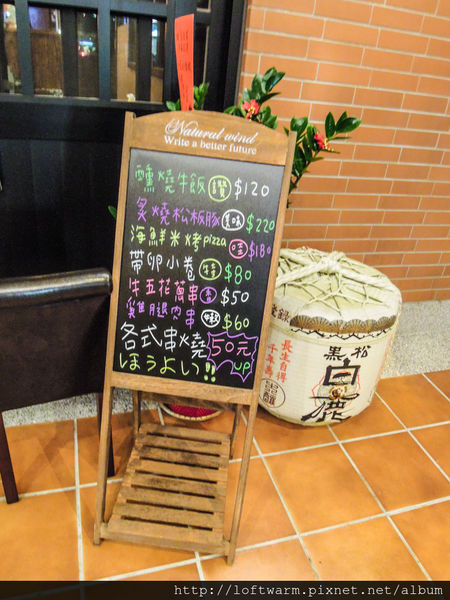 Natural wind
Write a better future
醺燒牛飯 讚 $120
炙燒松板豚 美味 $220
海鮮米烤pizza 哇 $180
帶卵小卷 特 $80
牛五花蔥串 $50
雞腿肉串 $60
各式串燒 50元
ほうよい!! up
登録
黒松
白鹿
長生自得
千年寿
http://loftwarm.pixnet.net/album